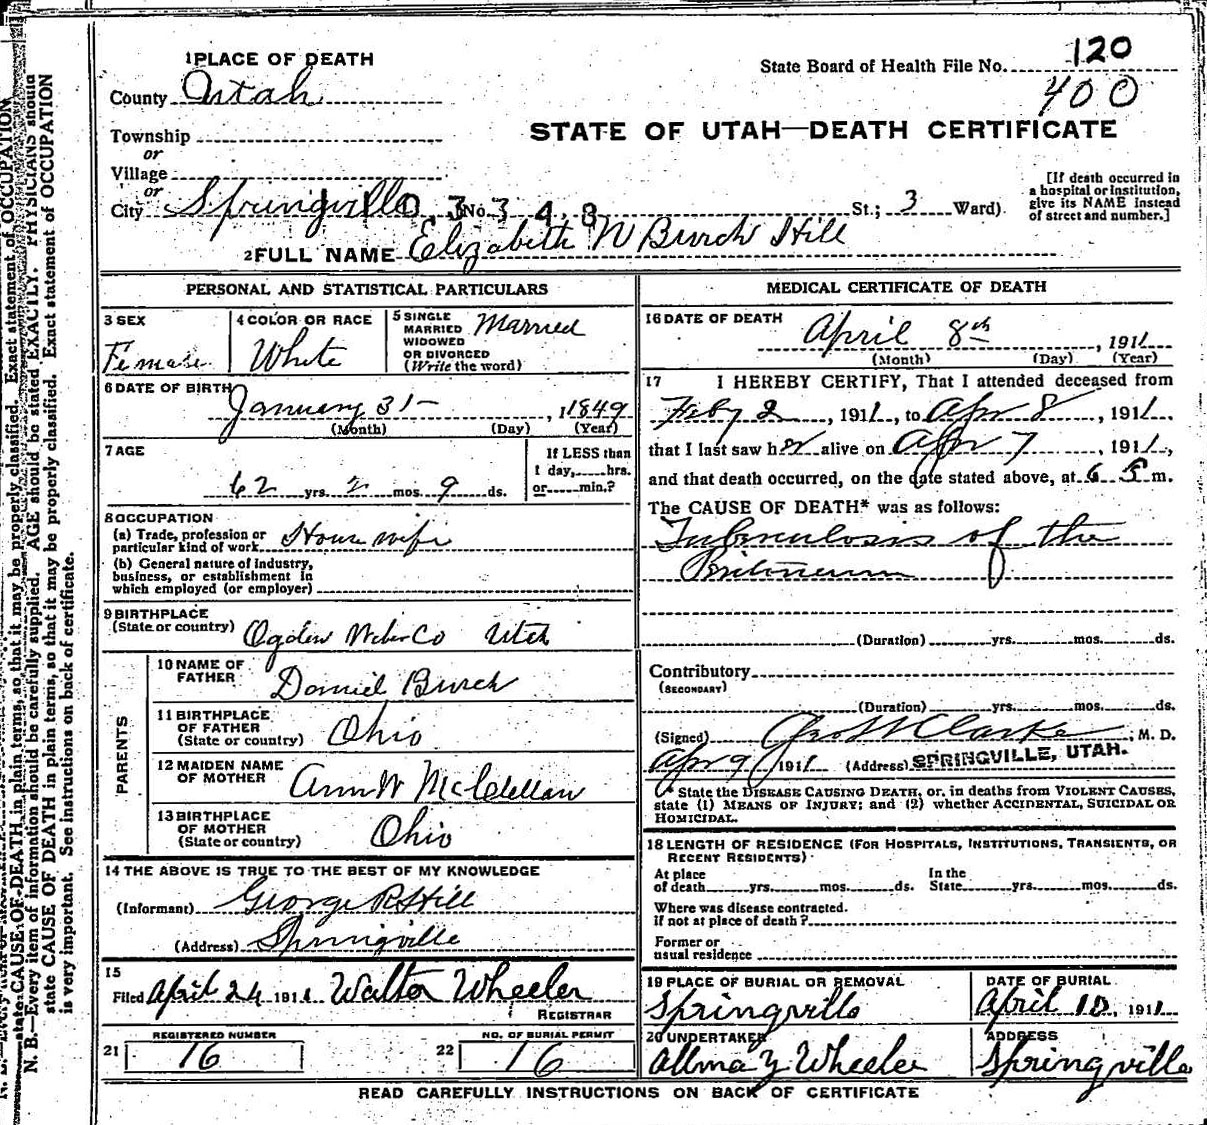 1 PLACE OF DEATH
County Utah
Township
or
Village
or
City Springville No. St.; 3 Ward).
State Board of Health File No. 120
400
STATE OF UTAH—DEATH CERTIFICATE
[If death occurred in
a hospital or institution,
give its NAME instead
of street and number.]
2 FULL NAME Elizabeth W Burch Hill
PERSONAL AND STATISTICAL PARTICULARS
3 SEX
Female
4 COLOR OR RACE
White
5 SINGLE
MARRIED
WIDOWED
OR DIVORCED
(Write the word)
Married
6 DATE OF BIRTH
January 31 - , 1849
(Month) (Day) (Year)
7 AGE
62 yrs. 2 mos. 9 ds.
If LESS than
1 day, hrs.
or min.?
8 OCCUPATION
(a) Trade, profession or
particular kind of work House wife
(b) General nature of industry,
business, or establishment in
which employed (or employer)
9 BIRTHPLACE
(State or country) Ogden Weber Co Utah
PARENTS
10 NAME OF
FATHER Daniel Burch
11 BIRTHPLACE
OF FATHER
(State or country) Ohio
12 MAIDEN NAME
OF MOTHER Ann W McClellan
13 BIRTHPLACE
OF MOTHER
(State or country) Ohio
14 THE ABOVE IS TRUE TO THE BEST OF MY KNOWLEDGE
(Informant) George R Hill
(Address) Springville
15
Filed April 24 1911 Walter Wheeler
REGISTRAR
REGISTERED NUMBER
21 16
NO. OF BURIAL PERMIT
22 16
MEDICAL CERTIFICATE OF DEATH
16 DATE OF DEATH
April 8th , 1911
(Month) (Day) (Year)
17 I HEREBY CERTIFY, That I attended deceased from
Feby 2 , 1911, to Apr 8 , 1911
that I last saw her alive on Apr 7 , 1911,
and that death occurred, on the date stated above, at 6 m.
The CAUSE OF DEATH* was as follows:
Tuberculosis of the
Peritoneum
(Duration) yrs. mos. ds.
Contributory
(SECONDARY)
(Duration) yrs. mos. ds.
(Signed) Clarke, M. D.
Apr 9, 1911 (Address) SPRINGVILLE, UTAH.
* State the DISEASE CAUSING DEATH, or, in deaths from VIOLENT CAUSES,
state (1) MEANS OF INJURY; and (2) whether ACCIDENTAL, SUICIDAL OR
HOMICIDAL.
18 LENGTH OF RESIDENCE (FOR HOSPITALS, INSTITUTIONS, TRANSIENTS, OR
RECENT RESIDENTS)
At place
of death yrs. mos. ds.
In the
State yrs. mos. ds.
Where was disease contracted.
if not at place of death?
Former or
usual residence
19 PLACE OF BURIAL OR REMOVAL
Springville
DATE OF BURIAL
April 10, 1911
20 UNDERTAKER
Wheeler
ADDRESS
Springville
READ CAREFULLY INSTRUCTIONS ON BACK OF CERTIFICATE
N. B.—Every item of information should be carefully supplied. AGE should be stated EXACTLY. PHYSICIANS should
state CAUSE OF DEATH in plain terms, so that it may be properly classified. Exact statement of OCCUPATION
is very important. See instructions on back of certificate.